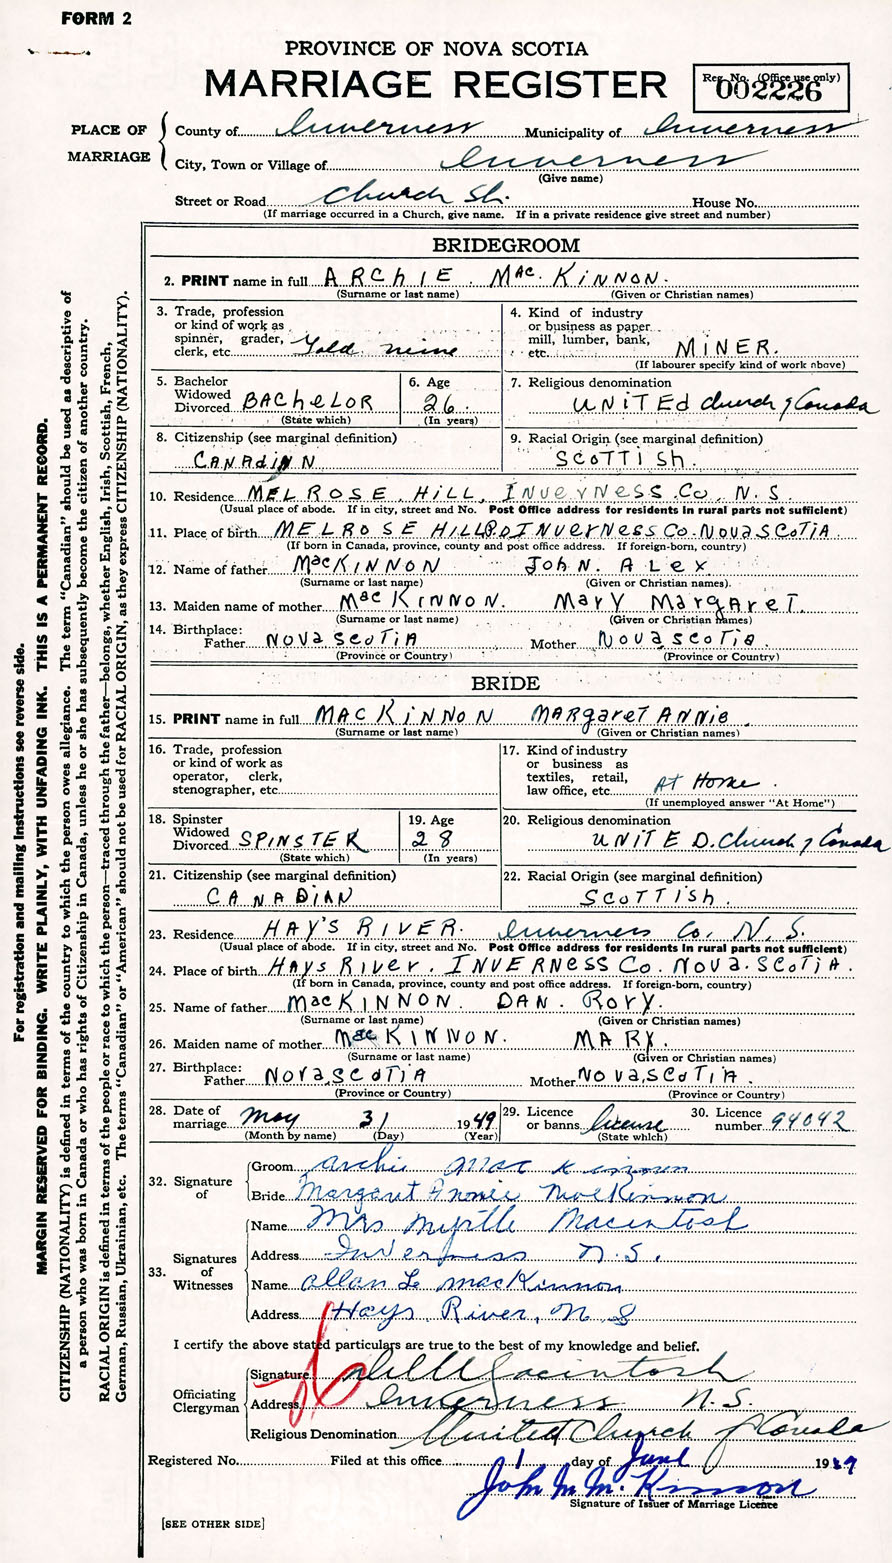 FORM 2
PROVINCE OF NOVA SCOTIA
MARRIAGE REGISTER
Reg. No. (Office use only)
002226
PLACE OF MARRIAGE
County of Inverness Municipality of Inverness
City, Town or Village of Inverness
(Give name)
Street or Road Church St. House No.
(If marriage occurred in a Church, give name. If in a private residence give street and number)
BRIDEGROOM
2. PRINT name in full ARCHIE MacKINNON.
(Surname or last name) (Given or Christian names)
3. Trade, profession
or kind of work as
spinner, grader,
clerk, etc. Gold mine
4. Kind of industry
or business as paper
mill, lumber, bank,
etc. MINER.
(If labourer specify kind of work above)
5. Bachelor
Widowed
Divorced BACHELOR
(State which)
6. Age
26
(In years)
7. Religious denomination
UNITEd church of Canada
8. Citizenship (see marginal definition)
CANADIAN
9. Racial Origin (see marginal definition)
SCOTTISH.
10. Residence MELROSE HILL, INVERNESS Co. N.S.
(Usual place of abode. If in city, street and No. Post Office address for residents in rural parts not sufficient)
11. Place of birth MELROSE HILL INVERNESS Co. NOVA SCOTIA
(If born in Canada, province, county and post office address. If foreign-born, country)
12. Name of father MacKINNON JOHN. ALEX
(Surname or last name) (Given or Christian names).
13. Maiden name of mother MacKINNON. MARY MARGARET.
(Surname or last name) (Given or Christian names)
14. Birthplace:
Father NOVA SCOTIA Mother NOVA SCOTIA.
(Province or Country) (Province or Country)
BRIDE
15. PRINT name in full MACKINNON MARGARET ANNIE.
(Surname or last name) (Given or Christian names)
16. Trade, profession
or kind of work as
operator, clerk,
stenographer, etc.
17. Kind of industry
or business as
textiles, retail,
law office, etc. At Home.
(If unemployed answer "At Home")
18. Spinster
Widowed
Divorced SPINSTER
(State which)
19. Age
28
(In years)
20. Religious denomination
UNITED. Church of Canada
21. Citizenship (see marginal definition)
CANADIAN
22. Racial Origin (see marginal definition)
SCOTTISH.
23. Residence HAY'S RIVER. Inverness Co. N.S.
(Usual place of abode. If in city, street and No. Post Office address for residents in rural parts not sufficient)
24. Place of birth HAYS RIVER. INVERNESS Co. NOVA. SCOTIA.
(If born in Canada, province, county and post office address. If foreign-born, country)
25. Name of father MacKINNON. DAN. RORY.
(Surname or last name) (Given or Christian names)
26. Maiden name of mother MacKINNON. MARY.
(Surname or last name) (Given or Christian names)
27. Birthplace:
Father NOVA SCOTIA Mother NOVA SCOTIA.
(Province or Country) (Province or Country)
28. Date of
marriage May 31 1949
(Month by name) (Day) (Year)
29. Licence
or banns license
(State which)
30. Licence
number 94042
32. Signature of
Groom Archie MacKinnon
Bride Margaret Annie MacKinnon
33. Signatures of Witnesses
Name Mrs Myrtle Macintosh
Address Inverness N.S.
Name Allan L MacKinnon
Address Hays River, N S
I certify the above stated particulars are true to the best of my knowledge and belief.
Officiating Clergyman
Signature Macintosh
Address Inverness N.S.
Religious Denomination United Church of Canada
Registered No. Filed at this office 1 day of June 1949
John M. McKinnon
Signature of Issuer of Marriage Licence
[SEE OTHER SIDE]
For registration and mailing instructions see reverse side.
MARGIN RESERVED FOR BINDING. WRITE PLAINLY, WITH UNFADING INK. THIS IS A PERMANENT RECORD.
CITIZENSHIP (NATIONALITY) is defined in terms of the country to which the person owes allegiance. The term "Canadian" should be used as descriptive of
a person who was born in Canada or who has rights of Citizenship in Canada, unless he or she has subsequently become the citizen of another country.
RACIAL ORIGIN is defined in terms of the people or race to which the person—traced through the father—belongs, whether English, Irish, Scottish, French,
German, Russian, Ukrainian, etc. The terms "Canadian" or "American" should not be used for RACIAL ORIGIN, as they express CITIZENSHIP (NATIONALITY).